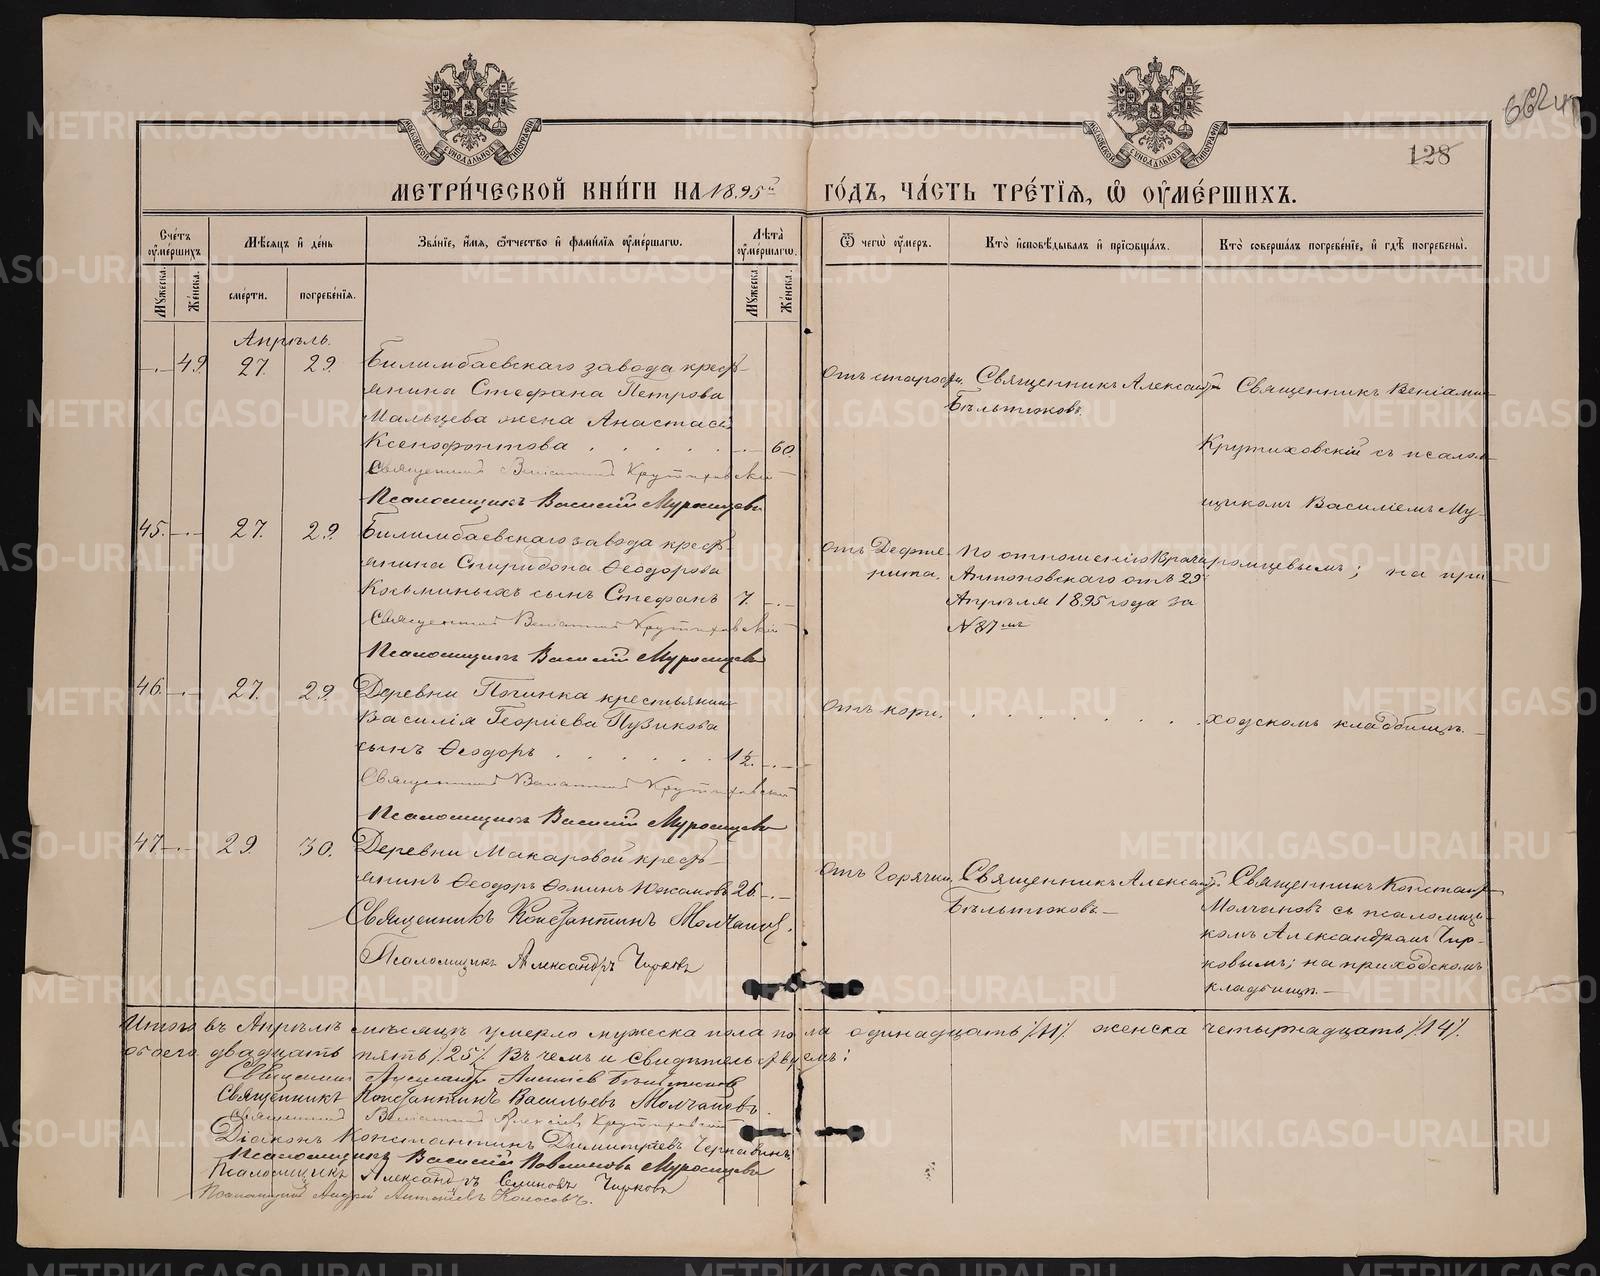 МЕТРИ́ЧЕСКОЙ КНИ́ГИ НА 1895й ГО́ДЪ, ЧА́СТЬ ТРЕ́ТІЯ, Ѽ ОУМЕ́РШИХЪ.
128
Сче́тъ оуме́ршихъ
Мужеска.
Же́нска.
Мѣ́сяцъ и де́нь
сме́рти.
погребе́нія.
Зва́ніе, и́мя, ѻ҆́тчество и фами́лія оуме́ршагѡ.
Лѣ́та оуме́ршагѡ.
Мужеска.
Же́нска.
Ѿ чегѡ̀ оу́меръ.
Кто̀ исповѣ́дывалъ и пріѡбща́лъ.
Кто̀ соверша́лъ погребе́ніе, и гдѣ̀ погребены̀.
Апрѣль.
49. 27. 29.
Билимбаевскаго завода кресть-
янина Стефана Петрова
Мальцева жена Анастасія
Ксенофонтова 60.
Священникъ Веніаминъ Крутиховскій
Псаломщикъ Василій Муромцевъ
Отъ старости.
Священникъ Александръ
Бѣльтюковъ.
Священникъ Веніаминъ
Крутиховскій съ псалом-
щикомъ Василіемъ Му-
ромцевымъ; на при-
ходскомъ кладбищѣ.
45. 27. 29.
Билимбаевскаго завода кресть-
янина Спиридона Ѳеодорова
Косьминыхъ сынъ Стефанъ 7.
Священникъ Веніаминъ Крутиховскій
Псаломщикъ Василій Муромцевъ
Отъ Дефте-
рита.
По отношенію Врача
Антоновскаго отъ 29
Апрѣля 1895 года за
№ 87мъ
46. 27. 29.
Деревни Починка крестьянина
Василія Георгіева Пузикова
сынъ Ѳеодоръ 1½.
Священникъ Веніаминъ Крутиховскій
Псаломщикъ Василій Муромцевъ
Отъ кори.
47. 29 30.
Деревни Макаровой кресть-
янинъ Ѳеодоръ Ѳоминъ Южаковъ 26.
Священникъ Константинъ Молчановъ.
Псаломщикъ Александръ Чирковъ
Отъ Горячки.
Священникъ Александръ
Бѣльтюковъ.
Священникъ Константинъ
Молчановъ съ псаломщи-
комъ Александромъ Чир-
ковымъ; на приходскомъ
кладбищѣ.
Итого въ Апрѣлѣ мѣсяцѣ умерло мужеска пола одинадцать /11/. женска четырнадцать /14/.
обоего двадцать пять /25/. Въ чемъ и свидѣтельствуемъ:
Священникъ Александръ Алексіевъ Бѣльтюковъ
Священникъ Константинъ Васильевъ Молчановъ.
Священникъ Веніаминъ Алексіевъ Крутиховскій
Діаконъ Константинъ Димитріевъ Чернавинъ
Псаломщикъ Василій Павлиновъ Муромцевъ
Псаломщикъ Александръ Чирковъ
Псаломщикъ Андрей Антоніевъ Колосовъ.
METRIKI.GASO-URAL.RU